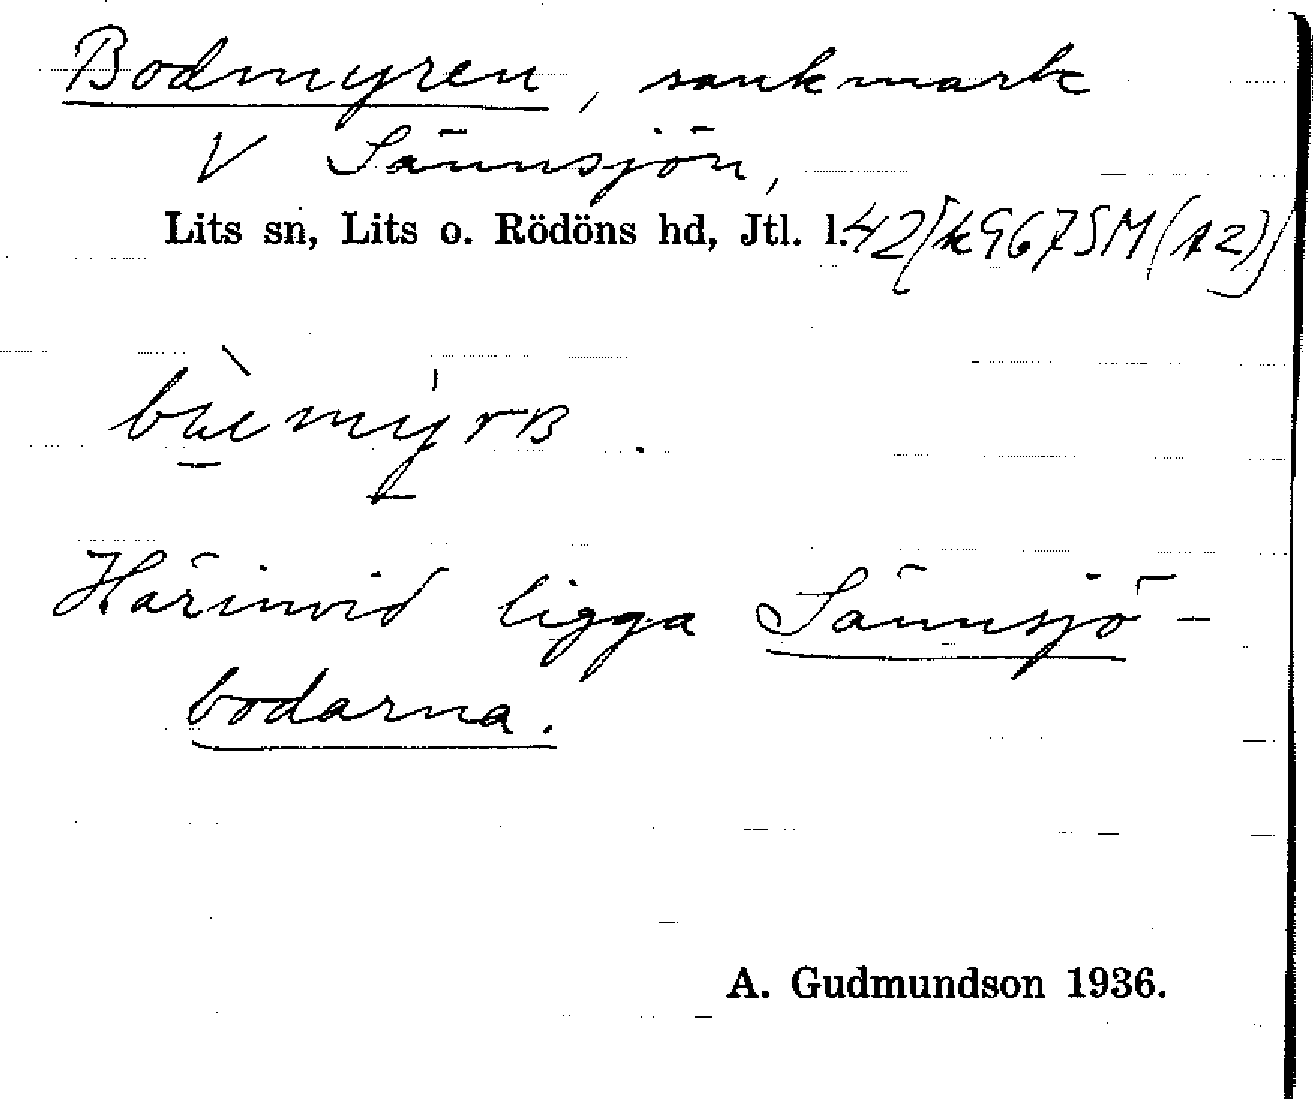 Bodmyren, sankmark
V Sännsjön,
Lits sn, Lits o. Rödöns hd, Jtl. l.
Härinvid ligga Sännsjö-
bodarna.
A. Gudmundson 1936.